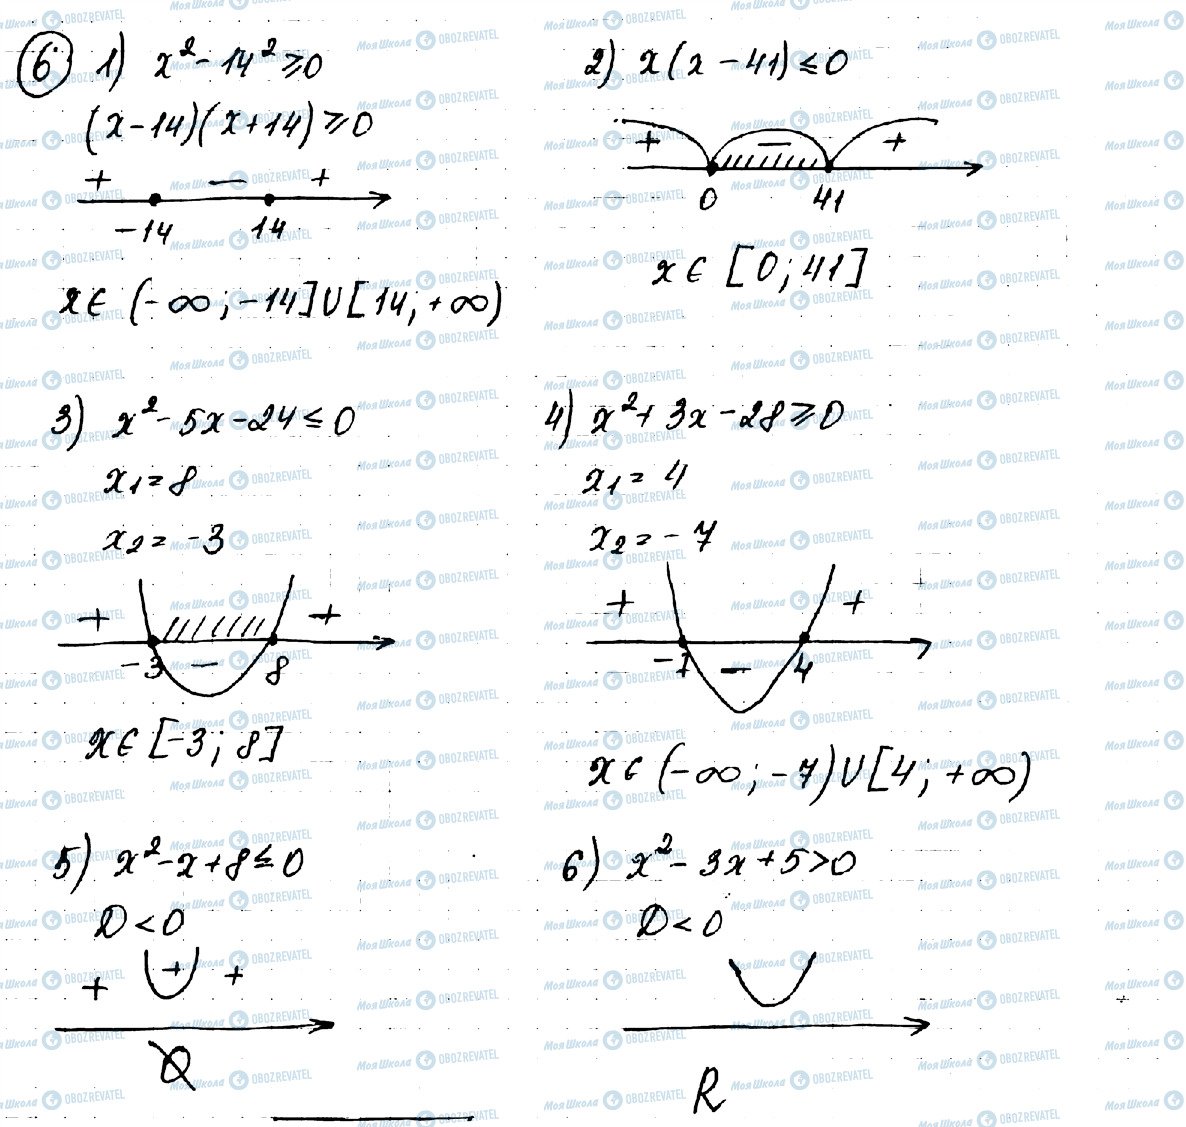 6 1) x² - 14² ≥ 0
(x - 14)(x + 14) ≥ 0
+ − +
-14 14
x ∈ (-∞; -14] U [14; +∞)
2) x(x - 41) ≤ 0
+ − +
0 41
x ∈ [0; 41]
3) x² - 5x - 24 ≤ 0
x₁ = 8
x₂ = -3
+ +
-3 − 8
x ∈ [-3; 8]
4) x² + 3x - 28 ≥ 0
x₁ = 4
x₂ = -7
+ +
-7 − 4
x ∈ (-∞; -7) U [4; +∞)
5) x² - x + 8 ≤ 0
D < 0
+ + +
Ø
6) x² - 3x + 5 > 0
D < 0
R
МояШкола OBOZREVATEL